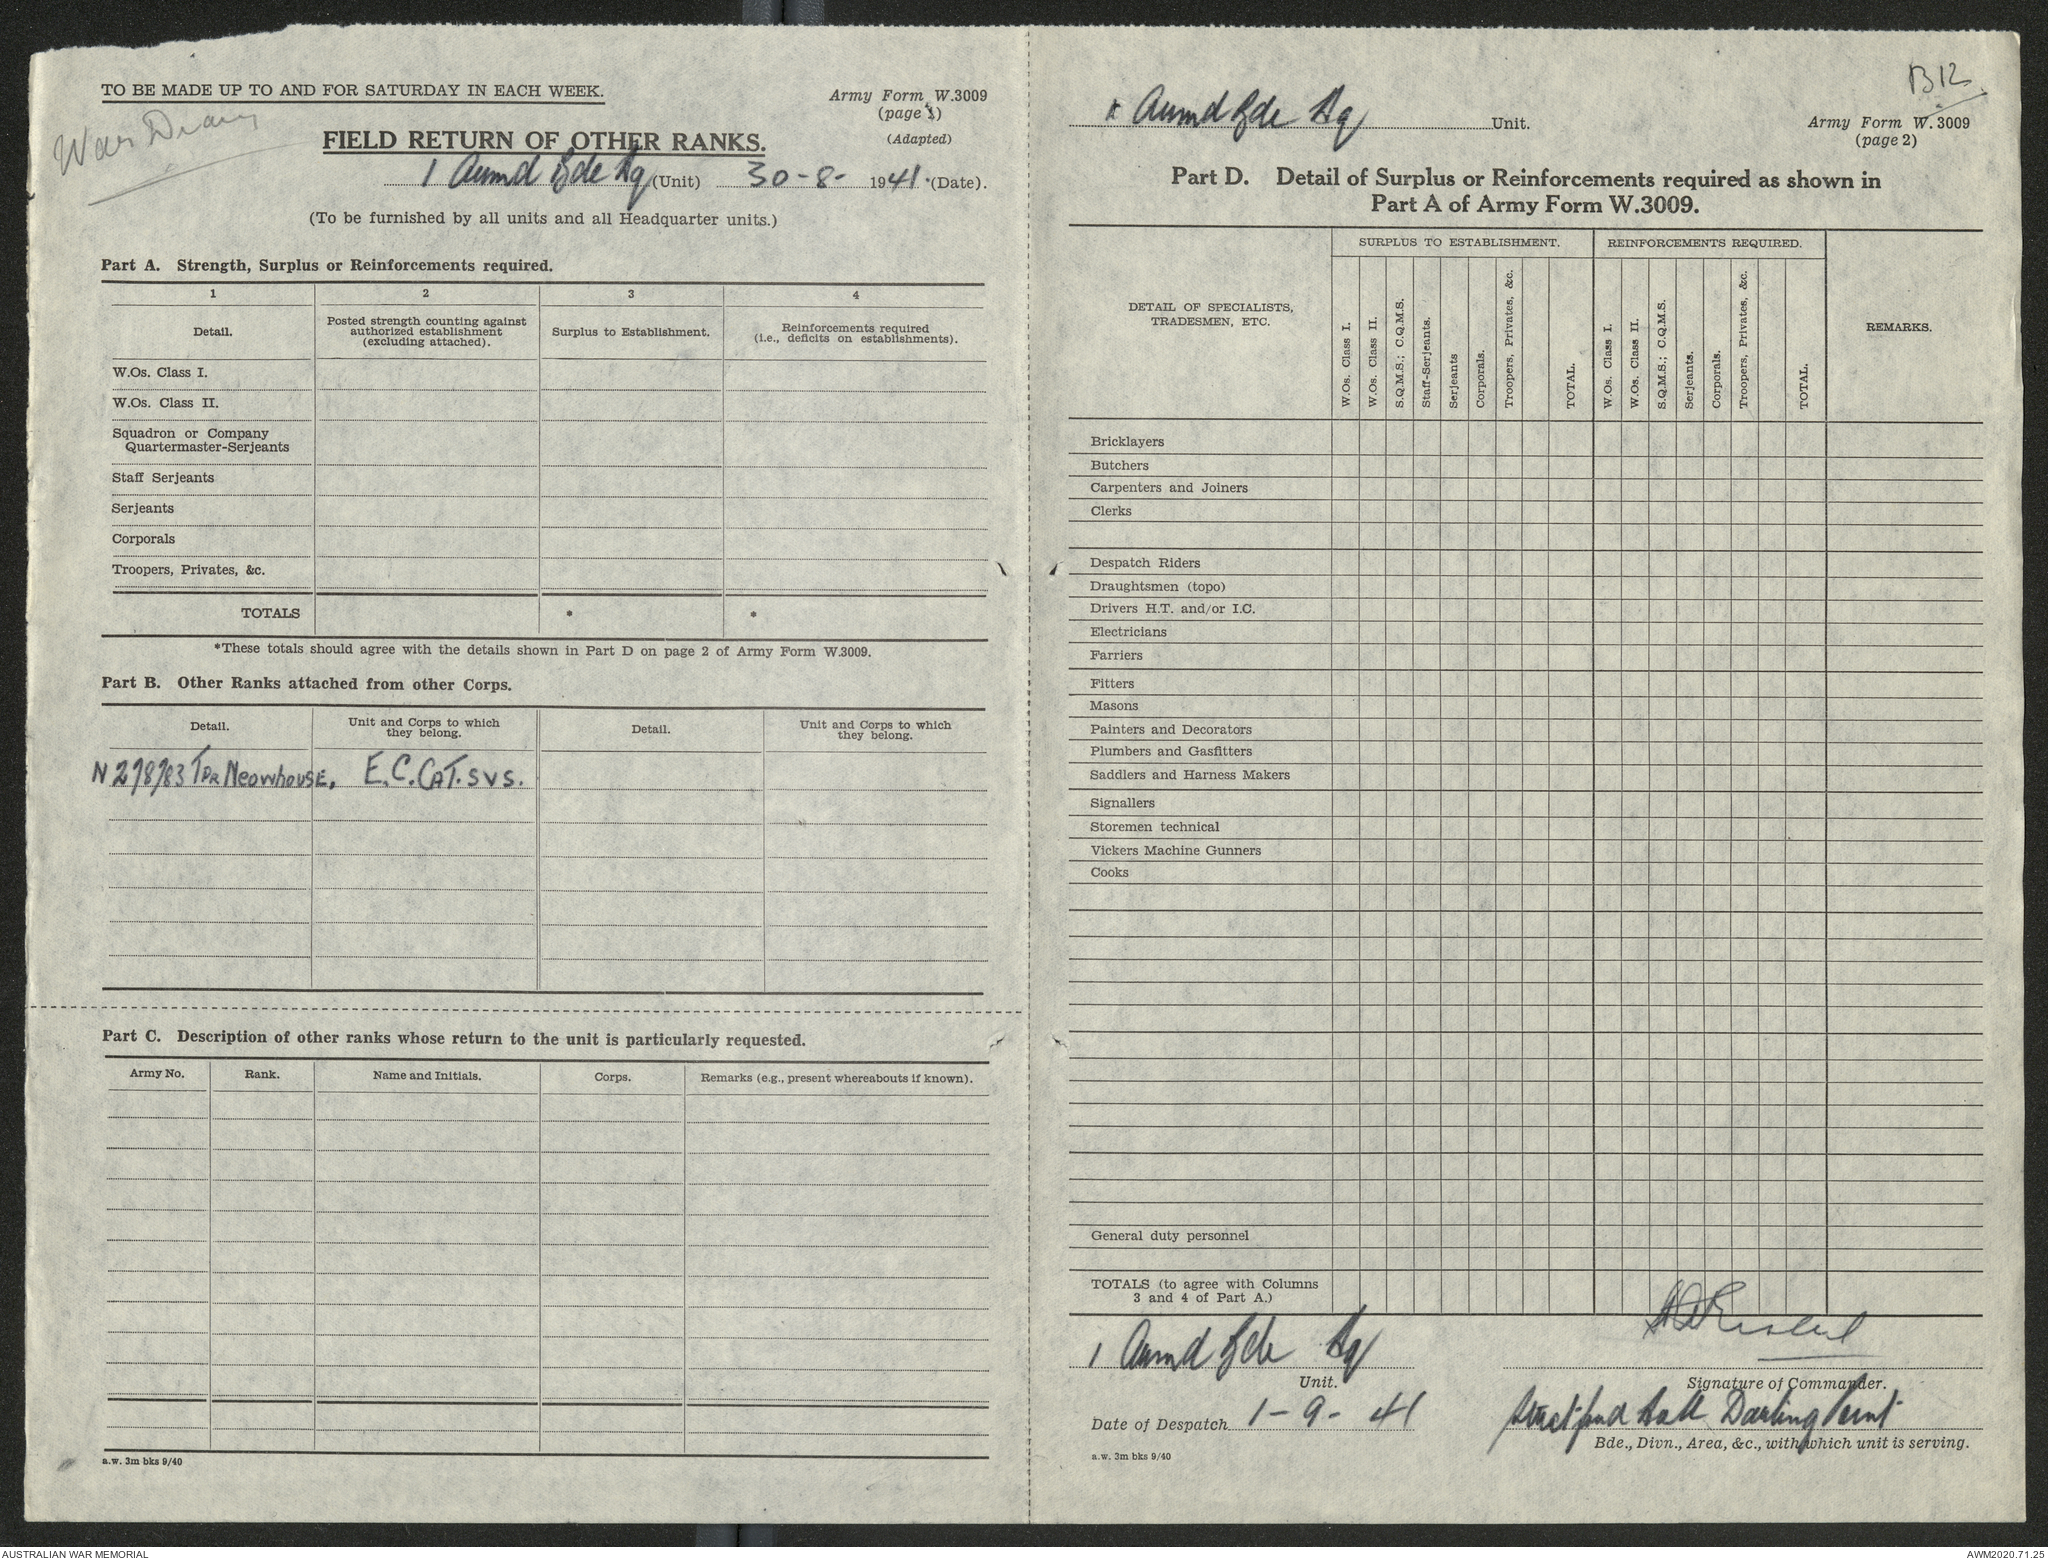 TO BE MADE UP TO AND FOR SATURDAY IN EACH WEEK.
Army Form W.3009
(page 1)
War Diary
FIELD RETURN OF OTHER RANKS.
(Adapted)
1 Armd Bde Hq (Unit) 30-8- 1941. (Date).
(To be furnished by all units and all Headquarter units.)
Part A. Strength, Surplus or Reinforcements required.
1 2 3 4
Detail.
Posted strength counting against authorized establishment (excluding attached).
Surplus to Establishment.
Reinforcements required (i.e., deficits on establishments).
W.Os. Class I.
W.Os. Class II.
Squadron or Company
Quartermaster-Serjeants
Staff Serjeants
Serjeants
Corporals
Troopers, Privates, &c.
TOTALS * *
*These totals should agree with the details shown in Part D on page 2 of Army Form W.3009.
Part B. Other Ranks attached from other Corps.
Detail.
Unit and Corps to which they belong.
Detail.
Unit and Corps to which they belong.
TPR E.C. CAT. SVS.
Part C. Description of other ranks whose return to the unit is particularly requested.
Army No. Rank. Name and Initials. Corps. Remarks (e.g., present whereabouts if known).
a.w. 3m bks 9/40
B12
Armd Bde Hq Unit.
Army Form W. 3009
(page 2)
Part D. Detail of Surplus or Reinforcements required as shown in
Part A of Army Form W.3009.
DETAIL OF SPECIALISTS,
TRADESMEN, ETC.
SURPLUS TO ESTABLISHMENT.
W.Os. Class I.
W.Os. Class II.
S.Q.M.S.; C.Q.M.S.
Staff-Serjeants.
Serjeants
Corporals.
Troopers, Privates, &c.
TOTAL.
REINFORCEMENTS REQUIRED.
W.Os. Class I.
W.Os. Class II.
S.Q.M.S.; C.Q.M.S.
Serjeants.
Corporals.
Troopers, Privates, &c.
TOTAL.
REMARKS.
Bricklayers
Butchers
Carpenters and Joiners
Clerks
Despatch Riders
Draughtsmen (topo)
Drivers H.T. and/or I.C.
Electricians
Farriers
Fitters
Masons
Painters and Decorators
Plumbers and Gasfitters
Saddlers and Harness Makers
Signallers
Storemen technical
Vickers Machine Gunners
Cooks
General duty personnel
TOTALS (to agree with Columns
3 and 4 of Part A.)
1 Armd Bde Hq
Unit.
Signature of Commander.
Date of Despatch 1-9-41
Stratford Hall Darling Point
Bde., Divn., Area, &c., with which unit is serving.
a.w. 3m bks 9/40
AUSTRALIAN WAR MEMORIAL
AWM2020.71.25